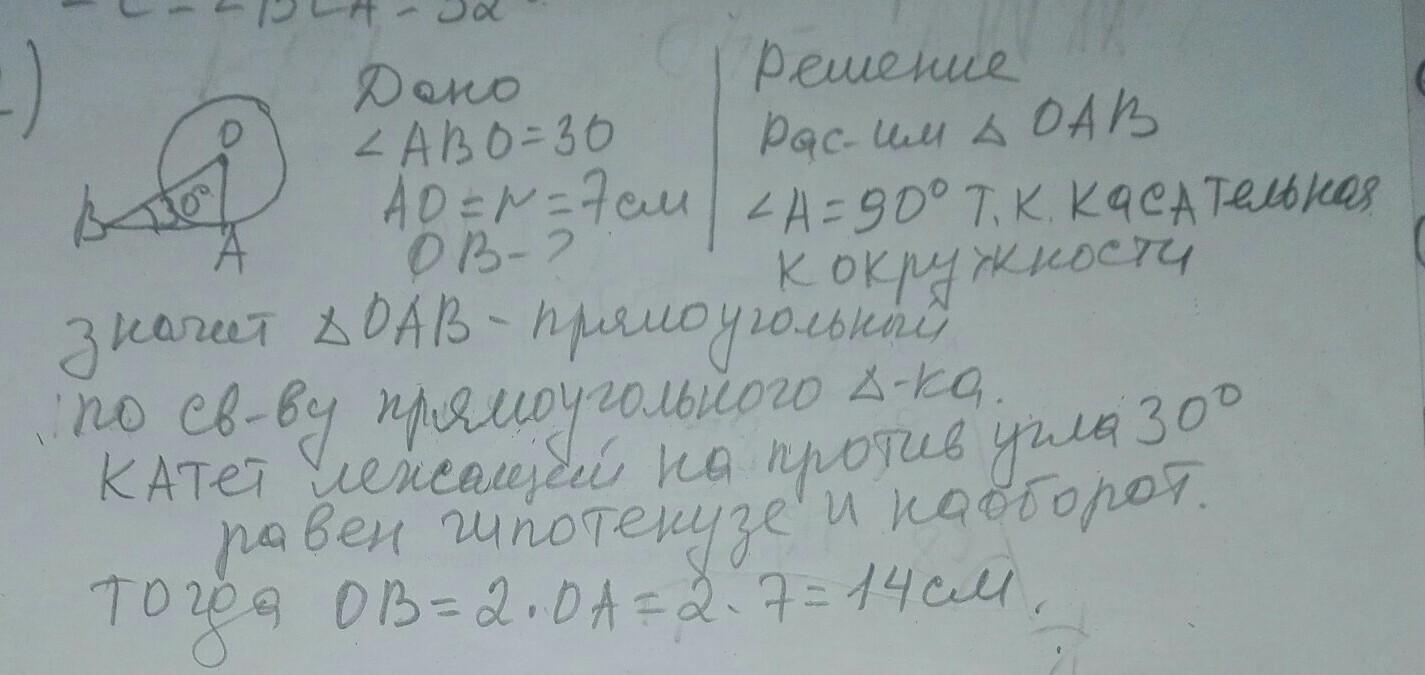 - C - ∠BCA - 32
)
O
B
30°
A
Дано
∠ABO=30
AO=r=7см
OB-?
Решение
Рас-им △ OAB
∠A=90° т.к. касательная
к окружности
значит △OAB - прямоугольный
по св-ву прямоугольного △-ка.
катет лежащей на против угла 30°
равен гипотенузе и наоборот.
тогда OB=2·OA=2·7=14см.